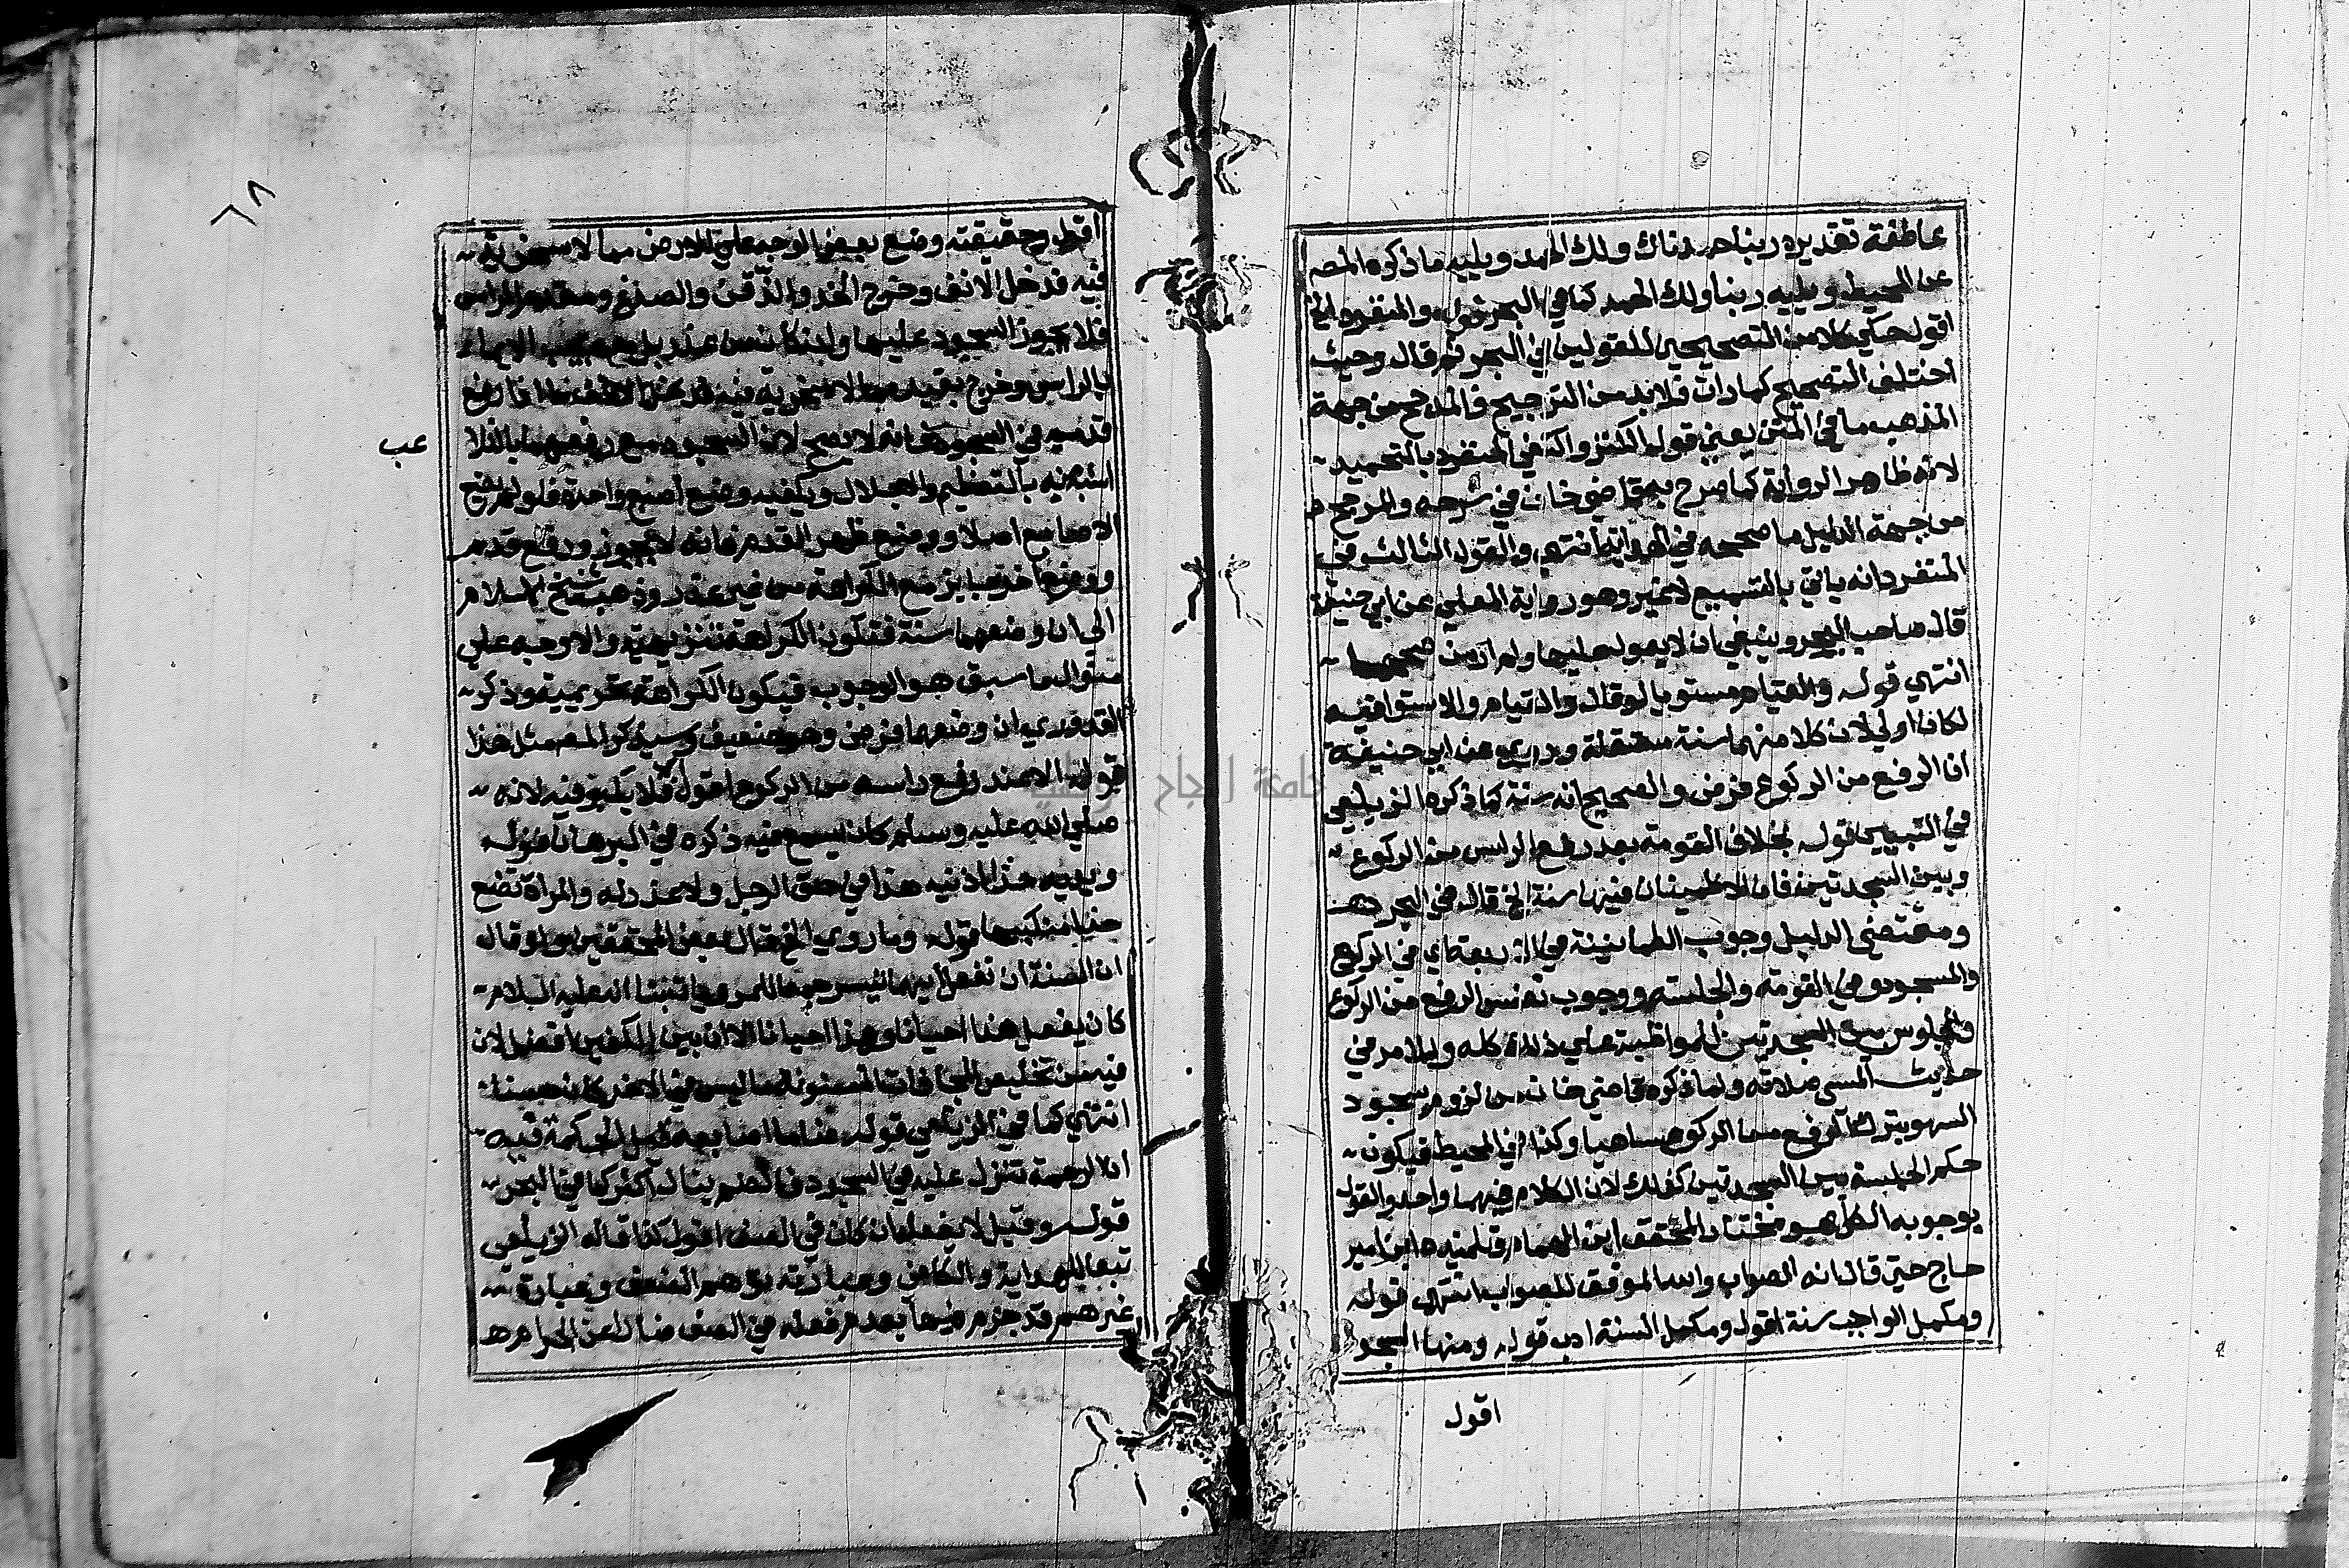 عاطفة تقديره ربنا حمدناك ولك الحمد ويليه ما ذكره المصـ
عن المحيط ويليه ربنا ولك الحمد كما في البحر قوله والمنفرد الخ
اقول حكي كلا من التصحيحين للقولين في البحر ثم قال وحيث
اختلف التصحيح كما رايت فلا بد من الترجيح فالمرجح من جهة
المذهب ما في المتن يعني قول الكنز واكتفي المنفرد بالتحميد
لانه ظاهر الرواية كما صرح به قاضي خان في شرحه والمرجح
من جهة الدليل ما صححه في الهداية انتهي والقول الثالث في
المنفرد انه ياتي بالتسميع لا غير وهو رواية المعلي عن ابي حنيفة
قال صاحب البحر وينبغي ان لا يعول عليها ولم ار من صححها
انتهي قوله والقيام مستويا لو قال والقيام والاستوا فيه
لكان اولي لان كلا منهما سنة مستقلة وروي عن ابي حنيفة
ان الرفع من الركوع فرض والصحيح انه سنة كما ذكره الزيلعي
في التبيين قوله بخلاف القومة بعد رفع الراس من الركوع
وبين السجدتين فان الاطمينان فيها سنة الخ قال في البحر
ومقتضي الدليل وجوب الطمانينة في الاربعة اي في الركوع
والسجود وفي القومة والجلسة ووجوب نفس الرفع من الركوع
والجلوس بين السجدتين للمواظبة علي ذلك كله وللامر في
حديث المسي صلاته ولما ذكره قاضي خان من لزوم سجود
السهو بترك الرفع من الركوع ساهيا وكذا في المحيط فيكون
حكم الجلسة بين السجدتين كذلك لان الكلام فيهما واحد والقول
بوجوب الكل هو مختار المحقق ابن الهمام وتلميذه ابن امير
حاج حتي قال انه الصواب والله الموفق للصواب انتهي قوله
ومكمل الواجب سنة اقول ومكمل السنة ادب قوله ومنها السجود
اقول
٦٨
اقول وحقيقته وضع بعض الوجه علي الارض مما لا سخرية
فيه فدخل الانف وخرج الخد والذقن والصدغ ومقدم الراس
فلا يجوز السجود عليها وان كان من عذر بل يجب الايماء
بالراس وخرج بقيد مما لا سخرية فيه ما اذا رفع
قدميه في السجود فانه لا يصح لان السجود مع رفعهما بالتلا
عب
اشبه منه بالتعظيم والاجلال ويكفيه وضع اصبع واحدة فلو لم يضع
الاصابع اصلا ووضع ظهر القدم فانه لا يجوز ورفع قدم
ووضع اخري جايز مع الكراهة من غير عذر وذهب شيخ الاسلام
الي ان وضعهما سنة فتكون الكراهة تنزيهية والاوجه علي
منوال ما سبق هو الوجوب فيكون الكراهة تحريمية وذكر
القدوري ان وضعهما فرض وهو ضعيف وسيذكر المصـ مثل هذا
قوله الا عند رفع راسه من الركوع اقول فلا يكبر فيه لانه
صلي الله عليه وسلم كان يسمع فيه ذكره في البرهان قوله
ويديه حذا اذنيه هذا في حق الرجل ولا عذر له والمراة تضع
حذا منكبيها قوله وما روي الخ قال بعض المحققين ولو قال
ان السنة ان تفعل ايهما تيسر جمعا للمروي بنا انه عليه السلام
كان يفعل هذا احيانا وهذا احيانا الا ان بين الكفين افضل لان
فيه من تخليص المجافات المسنونة ما ليس في الاخر كان حسنا
انتهي كما في الزيلعي قوله ضاما اصابعه قيل الحكمة فيه
ان الرحمة تنزل عليه في السجود فبالضم ينال اكثر كما في البحر
قوله وقيل لا يفعل ان كان في الصف اقول كذا قاله الزيلعي
تبعا للهداية والكافي وعبارته توهم الضعف وعبارة
غيرهم قد جزم فيها بعدم فعله في الصف